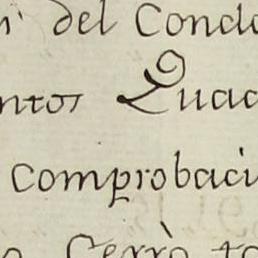 del Conda
ntos Quad
comprobaci
Cerrò to